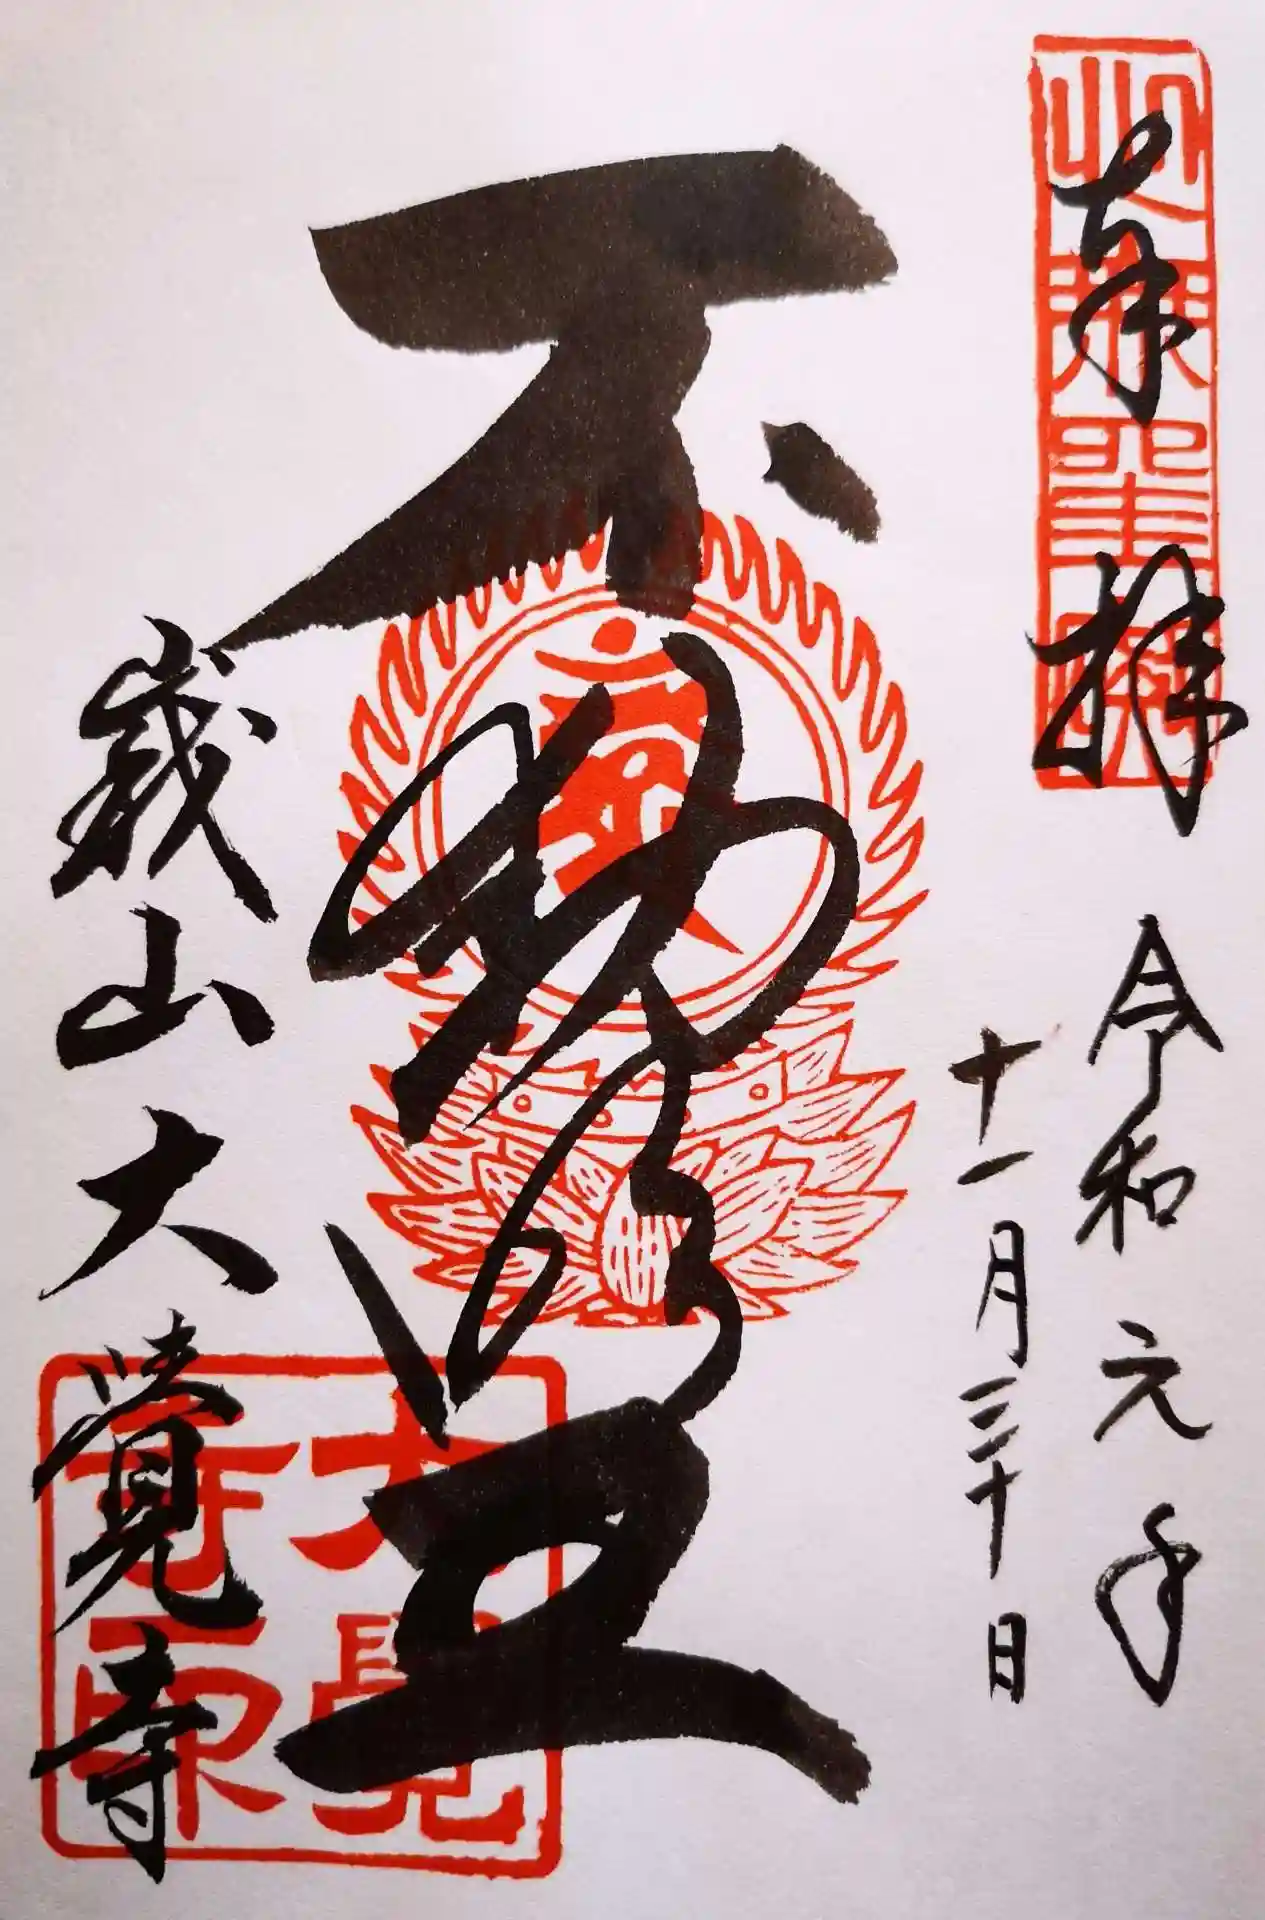 奉拝
令和元年
十一月三十日
不動明王
山大覺寺
大覺
寺印